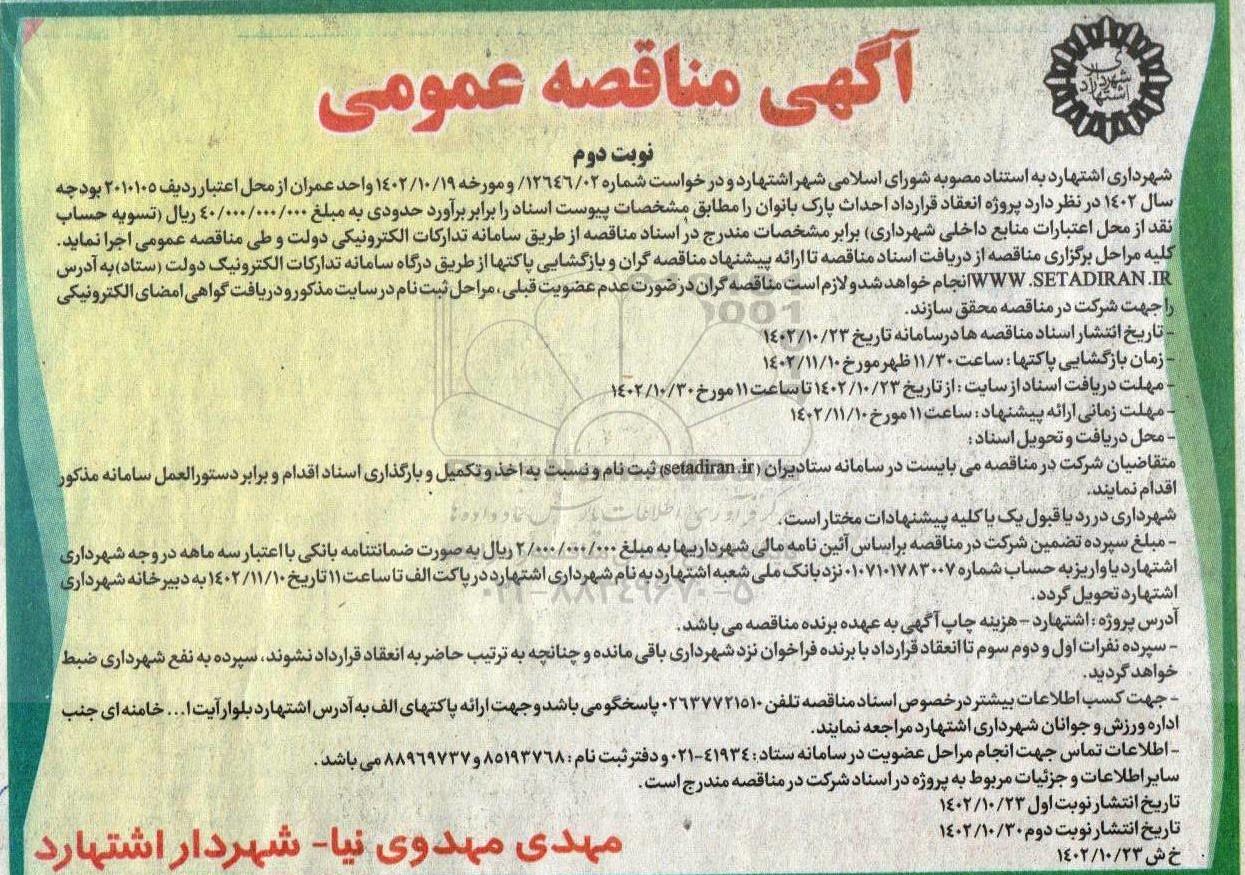 شهرداری اشتهارد
آگهی مناقصه عمومی
نوبت دوم
شهرداری اشتهارد به استناد مصوبه شورای اسلامی شهر اشتهارد و درخواست شماره ۱۲۶۴۶/۰۲/ و مورخه ۱۴۰۲/۱۰/۱۹ واحد عمران از محل اعتبار ردیف ۲۰۱۰۱۰۵ بودجه
سال ۱۴۰۲ در نظر دارد پروژه انعقاد قرارداد احداث پارک بانوان را مطابق مشخصات پیوست اسناد را برابر برآورد حدودی به مبلغ ۴۰/۰۰۰/۰۰۰/۰۰۰ ریال (تسویه حساب
نقد از محل اعتبارات منابع داخلی شهرداری) برابر مشخصات مندرج در اسناد مناقصه از طریق سامانه تدارکات الکترونیکی دولت و طی مناقصه عمومی اجرا نماید.
کلیه مراحل برگزاری مناقصه از دریافت اسناد مناقصه تا ارائه پیشنهاد مناقصه گران و بازگشایی پاکتها از طریق درگاه سامانه تدارکات الکترونیک دولت (ستاد) به آدرس
WWW.SETADIRAN.IR انجام خواهد شد و لازم است مناقصه گران در صورت عدم عضویت قبلی، مراحل ثبت نام در سایت مذکور و دریافت گواهی امضای الکترونیکی
را جهت شرکت در مناقصه محقق سازند.
- تاریخ انتشار اسناد مناقصه ها در سامانه تاریخ ۱۴۰۲/۱۰/۲۳
- زمان بازگشایی پاکتها: ساعت ۱۱/۳۰ ظهر مورخ ۱۴۰۲/۱۱/۱۰
- مهلت دریافت اسناد از سایت: از تاریخ ۱۴۰۲/۱۰/۲۳ تا ساعت ۱۱ مورخ ۱۴۰۲/۱۰/۳۰
- مهلت زمانی ارائه پیشنهاد: ساعت ۱۱ مورخ ۱۴۰۲/۱۱/۱۰
- محل دریافت و تحویل اسناد:
متقاضیان شرکت در مناقصه می بایست در سامانه ستادیران (setadiran.ir) ثبت نام و نسبت به اخذ و تکمیل و بارگذاری اسناد اقدام و برابر دستورالعمل سامانه مذکور
اقدام نمایند.
شهرداری در رد یا قبول یک یا کلیه پیشنهادات مختار است.
- مبلغ سپرده تضمین شرکت در مناقصه براساس آئین نامه مالی شهرداریها به مبلغ ۲/۰۰۰/۰۰۰/۰۰۰ ریال به صورت ضمانتنامه بانکی با اعتبار سه ماهه در وجه شهرداری
اشتهارد یا واریز به حساب شماره ۰۱۰۷۱۰۱۷۸۳۰۰۷ نزد بانک ملی شعبه اشتهارد به نام شهرداری اشتهارد در پاکت الف تا ساعت ۱۱ تاریخ ۱۴۰۲/۱۱/۱۰ به دبیرخانه شهرداری
اشتهارد تحویل گردد.
آدرس پروژه: اشتهارد - هزینه چاپ آگهی به عهده برنده مناقصه می باشد.
- سپرده نفرات اول و دوم سوم تا انعقاد قرارداد با برنده فراخوان نزد شهرداری باقی مانده و چنانچه به ترتیب حاضر به انعقاد قرارداد نشوند، سپرده به نفع شهرداری ضبط
خواهد گردید.
- جهت کسب اطلاعات بیشتر درخصوص اسناد مناقصه تلفن ۰۲۶۳۷۷۲۱۵۱۰ پاسخگو می باشد و جهت ارائه پاکتهای الف به آدرس اشتهارد بلوار آیت ا... خامنه ای جنب
اداره ورزش و جوانان شهرداری اشتهارد مراجعه نمایند.
- اطلاعات تماس جهت انجام مراحل عضویت در سامانه ستاد: ۴۱۹۳۴-۰۲۱ و دفتر ثبت نام: ۸۵۱۹۳۷۶۸ و ۸۸۹۶۹۷۳۷ می باشد.
سایر اطلاعات و جزئیات مربوط به پروژه در اسناد شرکت در مناقصه مندرج است.
تاریخ انتشار نوبت اول ۱۴۰۲/۱۰/۲۳
تاریخ انتشار نوبت دوم ۱۴۰۲/۱۰/۳۰
خ ش ۱۴۰۲/۱۰/۲۳
مهدی مهدوی نیا- شهردار اشتهارد
۰۲۱-۸۸۳۴۹۶۷۰-۵